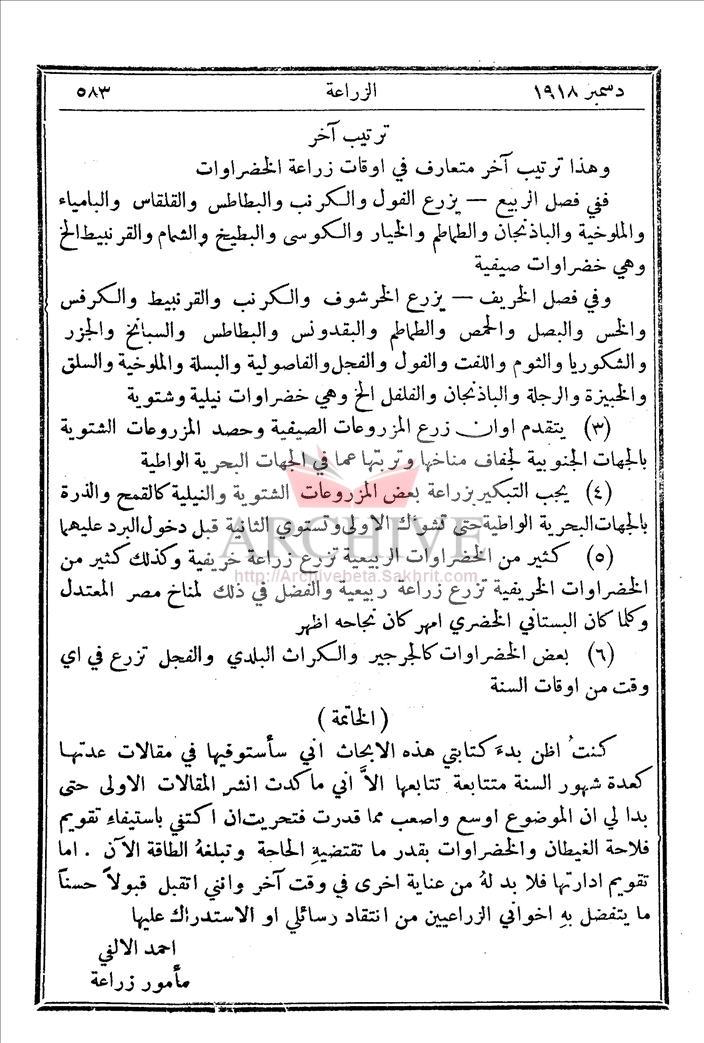 دسمبر ١٩١٨
الزراعة
٥٨٣
ترتيب آخر
وهذا ترتيب آخر متعارف في اوقات زراعة الخضراوات
ففي فصل الربيع — يزرع الفول والكرنب والبطاطس والقلقاس والبامياء
والملوخية والباذنجان والطماطم والخيار والكوسى والبطيخ والشمام والقرنبيط الخ
وهي خضراوات صيفية
وفي فصل الخريف — يزرع الخرشوف والكرنب والقرنبيط والكرفس
والخس والبصل والحمص والطماطم والبقدونس والبطاطس والسبانخ والجزر
والشكوريا والثوم واللفت والفول والفجل والفاصولية والبسلة والملوخية والسلق
والخبيزة والرجلة والباذنجان والفلفل الخ وهي خضراوات نيلية وشتوية
(٣) يتقدم اوان زرع المزروعات الصيفية وحصد المزروعات الشتوية
بالجهات الجنوبية لجفاف مناخها وتربتها عما في الجهات البحرية الواطية
(٤) يجب التبكير بزراعة بعض المزروعات الشتوية والنيلية كالقمح والذرة
بالجهات البحرية الواطية حتى تشوك الاولى وتستوي الثانية قبل دخول البرد عليهما
ARCHIVE
(٥) كثير من الخضراوات الربيعية تزرع زراعة خريفية وكذلك كثير من
http://Archivebeta.Sakhrit.com
الخضراوات الخريفية تزرع زراعة ربيعية والفضل في ذلك لمناخ مصر المعتدل
وكلما كان البستاني الخضري امهر كان نجاحه اظهر
(٦) بعض الخضراوات كالجرجير والكراث البلدي والفجل تزرع في اي
وقت من اوقات السنة
(الخاتمة)
كنتُ اظن بدءَ كتابتي هذه الابحاث اني سأستوفيها في مقالات عدتها
كعدة شهور السنة متتابعة تتابعها الاَّ اني ما كدت انشر المقالات الاولى حتى
بدا لي ان الموضوع اوسع واصعب مما قدرت فتحريت ان اكتفي باستيفاءِ تقويم
فلاحة الغيطان والخضراوات بقدر ما تقتضيهِ الحاجة وتبلغهُ الطاقة الآن . اما
تقويم ادارتها فلا بد لهُ من عناية اخرى في وقت آخر وانني اتقبل قبولاً حسناً
ما يتفضل بهِ اخواني الزراعيين من انتقاد رسائلي او الاستدراك عليها
احمد الالفي
مأمور زراعة